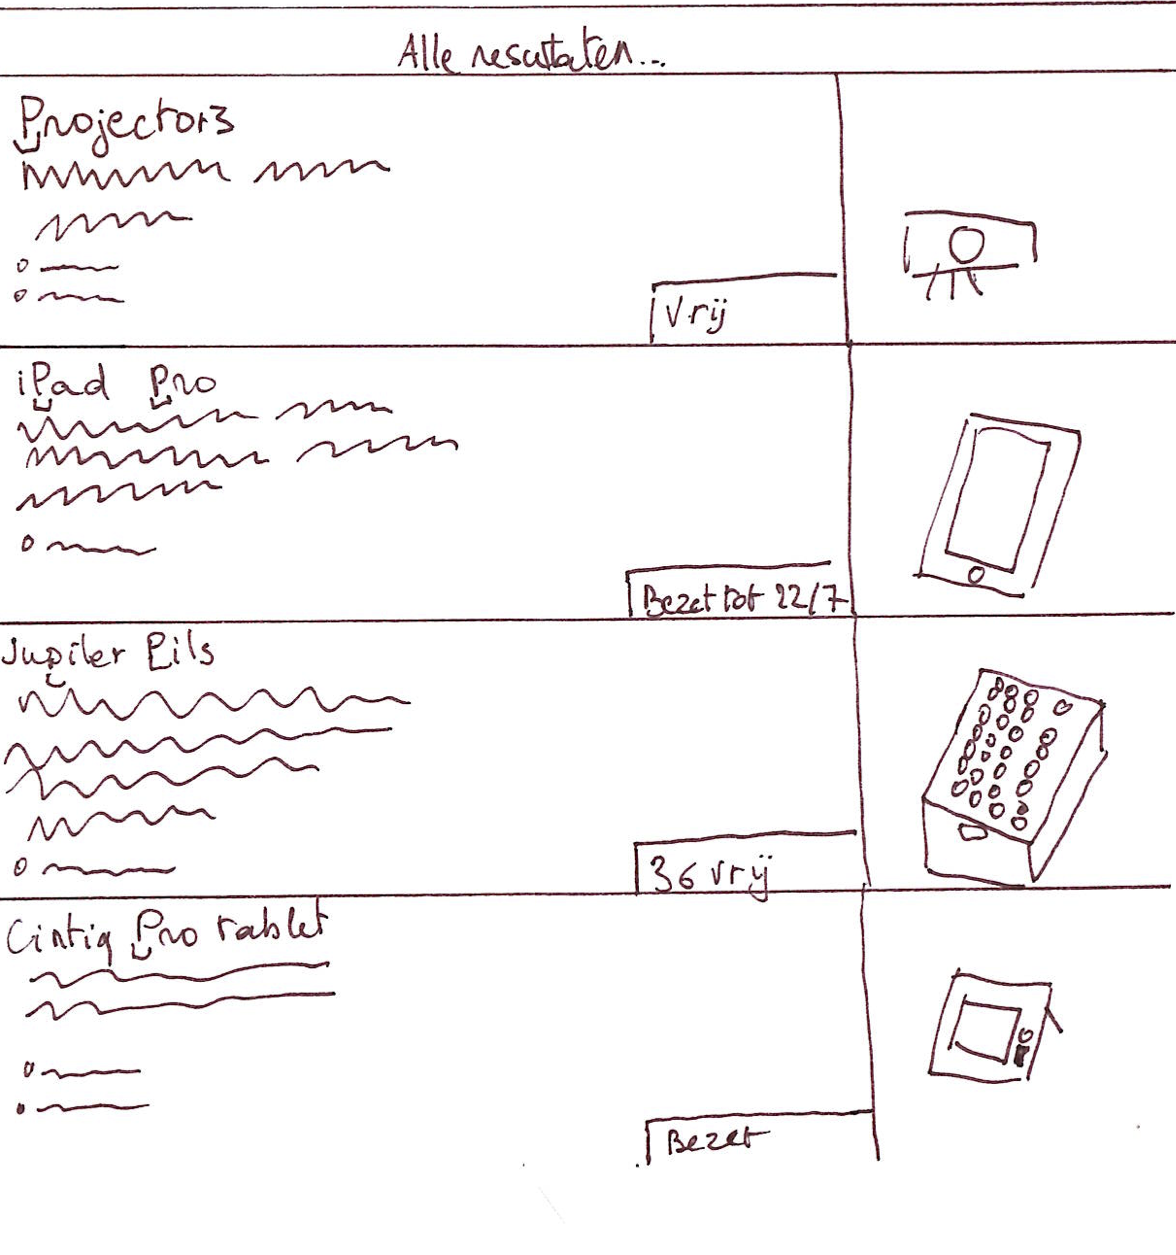 Alle resultaten...
Projector3
Vrij
iPad Pro
Bezet tot 22/7
Jupiler Pils
36 vrij
Cintiq Pro tablet
Bezet